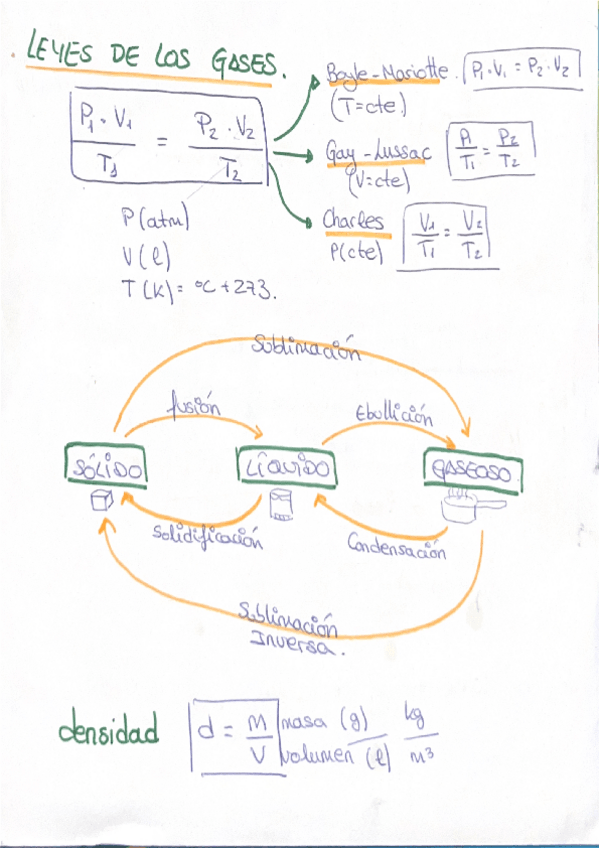 LEYES DE LOS GASES.
P₁ · V₁ / T₁ = P₂ · V₂ / T₂
P (atm)
V (l)
T (K) = ºC + 273.
Boyle - Mariotte. P₁ · V₁ = P₂ · V₂
(T=cte)
Gay - Lussac P₁/T₁ = P₂/T₂
(V=cte)
Charles V₁/T₁ = V₂/T₂
P(cte)
Sublimación
fusión
Ebullición
SÓLIDO
LÍQUIDO
GASEOSO
Solidificación
Condensación
Sublimación
Inversa.
densidad d = M/V masa (g) / volumen (l) kg/m³